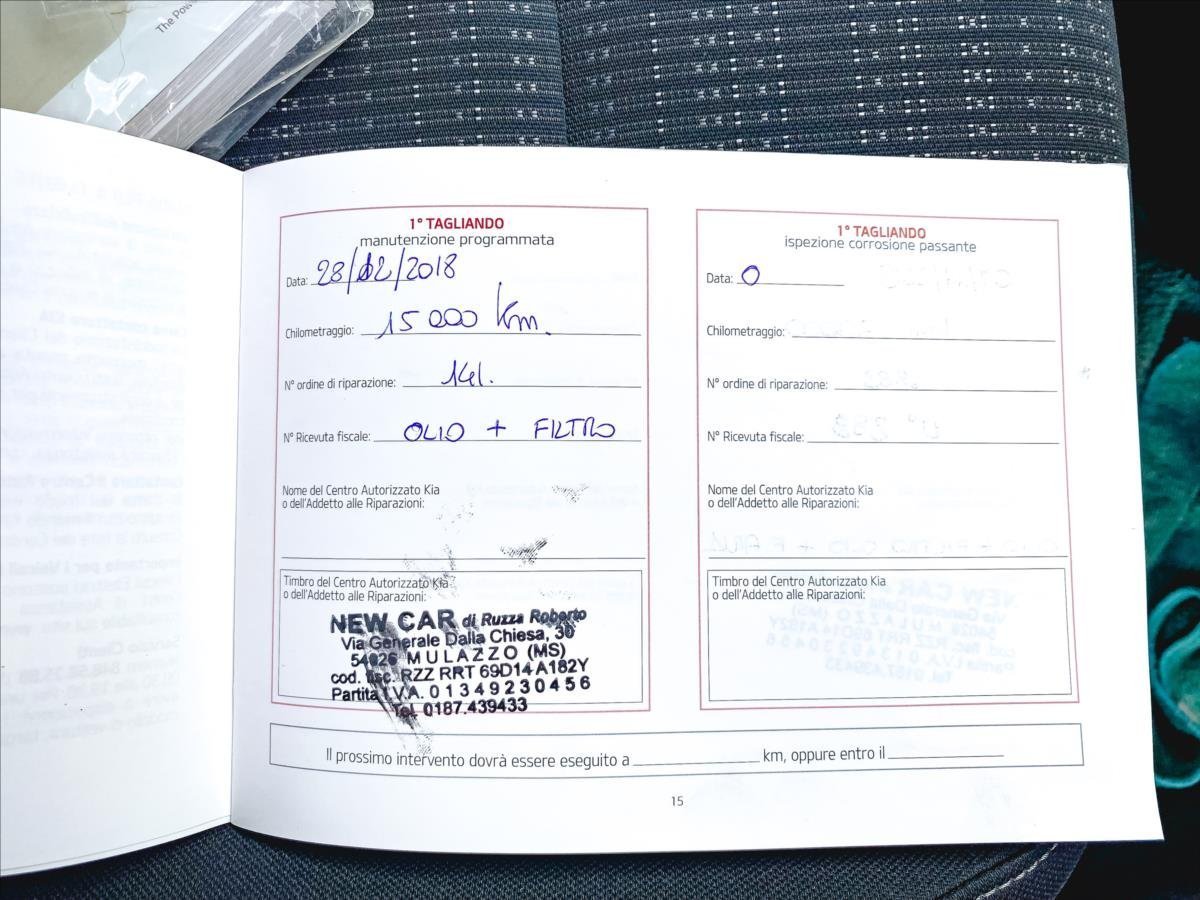 The Pow
1° TAGLIANDO
manutenzione programmata
Data: 28/12/2018
Chilometraggio: 15 000 Km.
N° ordine di riparazione: 141.
N° Ricevuta fiscale: OLIO + FILTRO
Nome del Centro Autorizzato Kia
o dell'Addetto alle Riparazioni:
Timbro del Centro Autorizzato Kia
o dell'Addetto alle Riparazioni:
NEW CAR di Ruzza Roberto
Via Generale Dalla Chiesa, 30
54026 MULAZZO (MS)
cod. fisc. RZZ RRT 69D14 A182Y
Partita I.V.A. 01349230456
Tel. 0187.439433
1° TAGLIANDO
ispezione corrosione passante
Data: O
Chilometraggio:
N° ordine di riparazione:
N° Ricevuta fiscale:
Nome del Centro Autorizzato Kia
o dell'Addetto alle Riparazioni:
Timbro del Centro Autorizzato Kia
o dell'Addetto alle Riparazioni:
Il prossimo intervento dovrà essere eseguito a km, oppure entro il
15